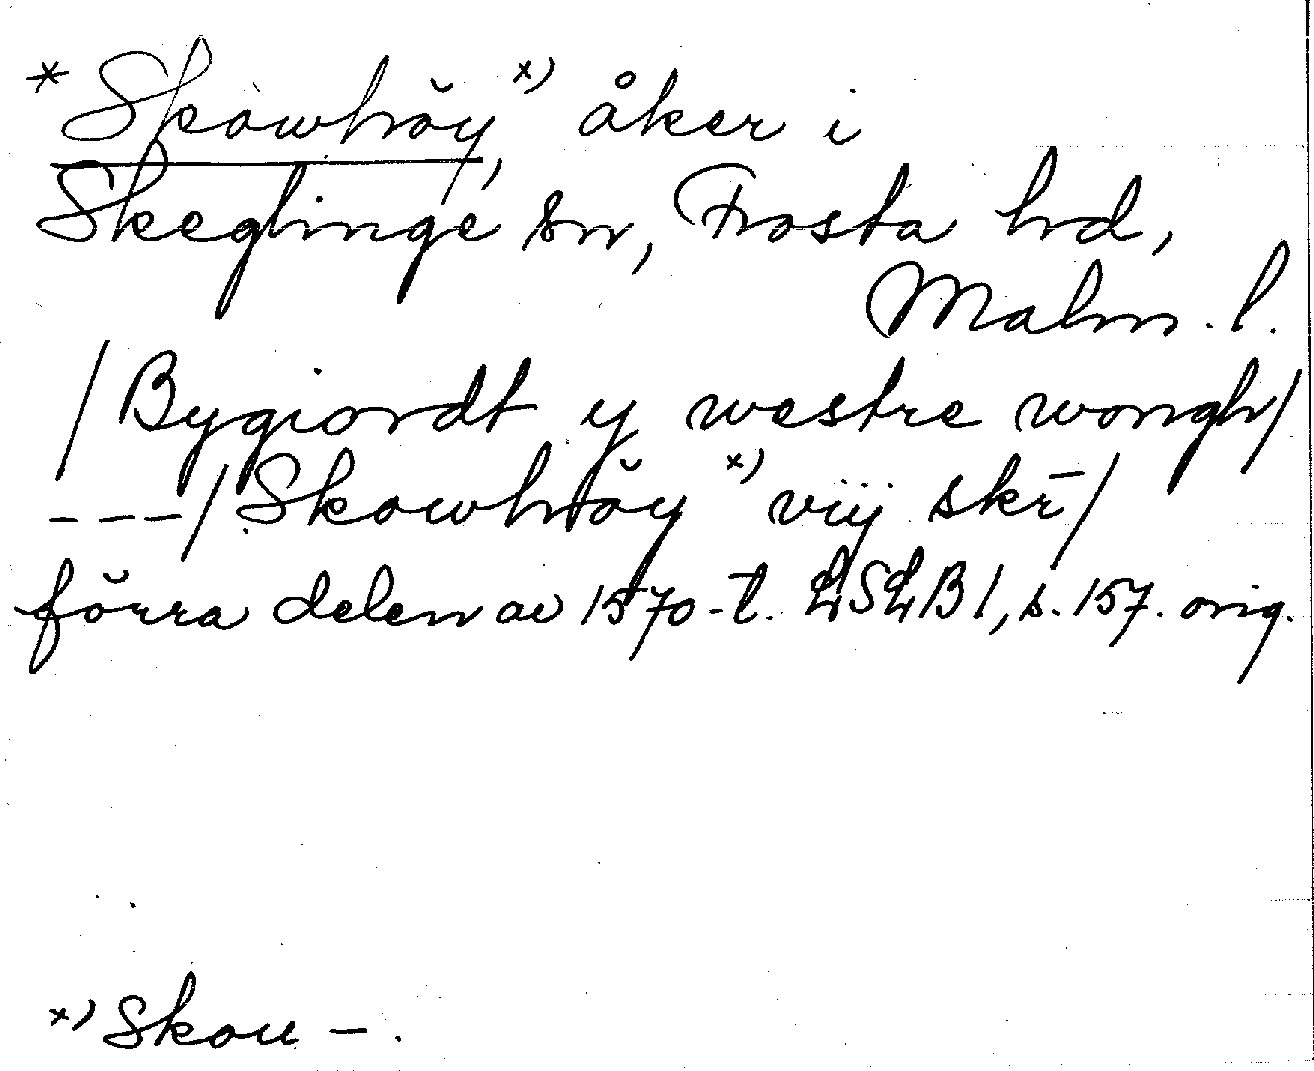 * Skowhöy, x) åker i
Skeglinge sn, Frosta hd,
Malm. l.
/Bygiordt y westre wongh/
---/Skowhöy x) vij skr̄/
förra delen av 1570-t. LSLB I, s. 157. orig.
x) Skou -.